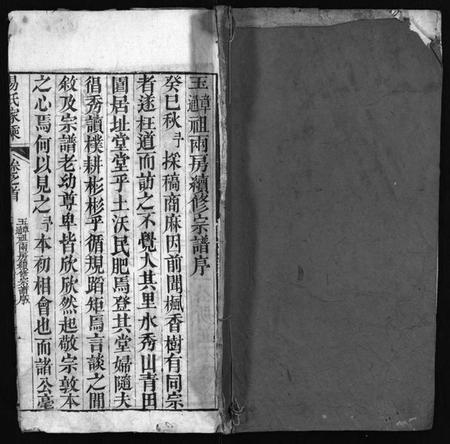 玉章過祖兩房續修宗譜序
癸巳秋予採稿商麻因前聞楓香樹有同宗
者遂枉道而訪之不覺入其里水秀山青田
圓居址堂堂乎土沃民肥焉登其堂婦隨夫
倡秀讀樸耕彬彬乎循規蹈矩焉言談之間
敘及宗譜老幼尊卑皆欣欣然起敬宗敦本
之心焉何以見之予本初相會也而諸公毫
易氏家乘 卷之首
玉章過祖兩房續修宗譜序